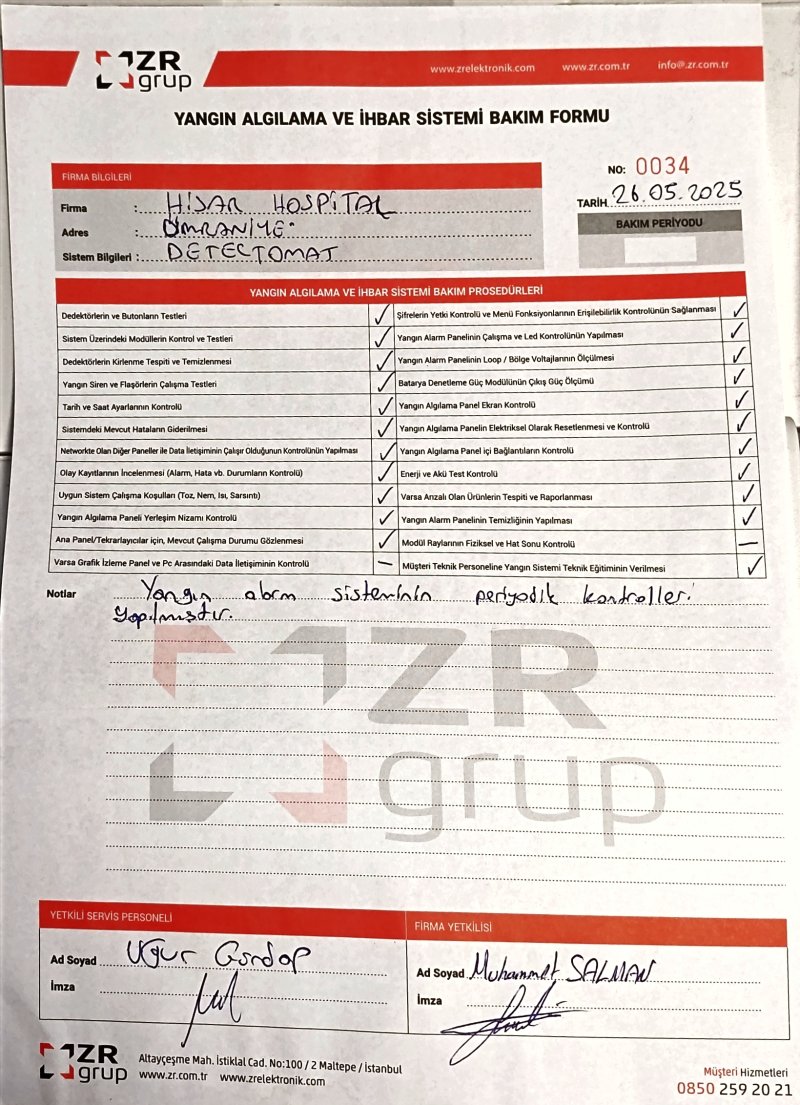 ZR grup
www.zrelektronik.com www.zr.com.tr info@.zr.com.tr
YANGIN ALGILAMA VE İHBAR SİSTEMİ BAKIM FORMU
NO: 0034
TARİH 26.05.2025
BAKIM PERİYODU
FİRMA BİLGİLERİ
Firma : HİSAR HOSPİTAL
Adres : ÜMRANİYE
Sistem Bilgileri : DETECTOMAT
YANGIN ALGILAMA VE İHBAR SİSTEMİ BAKIM PROSEDÜRLERİ
Dedektörlerin ve Butonların Testleri ✓ Şifrelerin Yetki Kontrolü ve Menü Fonksiyonlarının Erişilebilirlik Kontrolünün Sağlanması ✓
Sistem Üzerindeki Modüllerin Kontrol ve Testleri ✓ Yangın Alarm Panelinin Çalışma ve Led Kontrolünün Yapılması ✓
Dedektörlerin Kirlenme Tespiti ve Temizlenmesi ✓ Yangın Alarm Panelinin Loop / Bölge Voltajlarının Ölçülmesi ✓
Yangın Siren ve Flaşörlerin Çalışma Testleri ✓ Batarya Denetleme Güç Modülünün Çıkış Güç Ölçümü ✓
Tarih ve Saat Ayarlarının Kontrolü ✓ Yangın Algılama Panel Ekran Kontrolü ✓
Sistemdeki Mevcut Hataların Giderilmesi ✓ Yangın Algılama Panelin Elektriksel Olarak Resetlenmesi ve Kontrolü ✓
Networkte Olan Diğer Paneller ile Data İletişiminin Çalışır Olduğunun Kontrolünün Yapılması ✓ Yangın Algılama Panel içi Bağlantıların Kontrolü ✓
Olay Kayıtlarının İncelenmesi (Alarm, Hata vb. Durumların Kontrolü) ✓ Enerji ve Akü Test Kontrolü ✓
Uygun Sistem Çalışma Koşulları (Toz, Nem, Isı, Sarsıntı) ✓ Varsa Arızalı Olan Ürünlerin Tespiti ve Raporlanması ✓
Yangın Algılama Paneli Yerleşim Nizamı Kontrolü ✓ Yangın Alarm Panelinin Temizliğinin Yapılması ✓
Ana Panel/Tekrarlayıcılar için, Mevcut Çalışma Durumu Gözlenmesi ✓ Modül Raylarının Fiziksel ve Hat Sonu Kontrolü —
Varsa Grafik İzleme Panel ve Pc Arasındaki Data İletişiminin Kontrolü — Müşteri Teknik Personeline Yangın Sistemi Teknik Eğitiminin Verilmesi ✓
Notlar Yangın alarm sisteminin periyodik kontrolleri
yapılmıştır.
ZR grup
YETKİLİ SERVİS PERSONELİ
Ad Soyad Uğur
İmza
FİRMA YETKİLİSİ
Ad Soyad Muhammet SALMAN
İmza
ZR grup
Altayçeşme Mah. İstiklal Cad. No:100 / 2 Maltepe / İstanbul
www.zr.com.tr www.zrelektronik.com
Müşteri Hizmetleri
0850 259 20 21